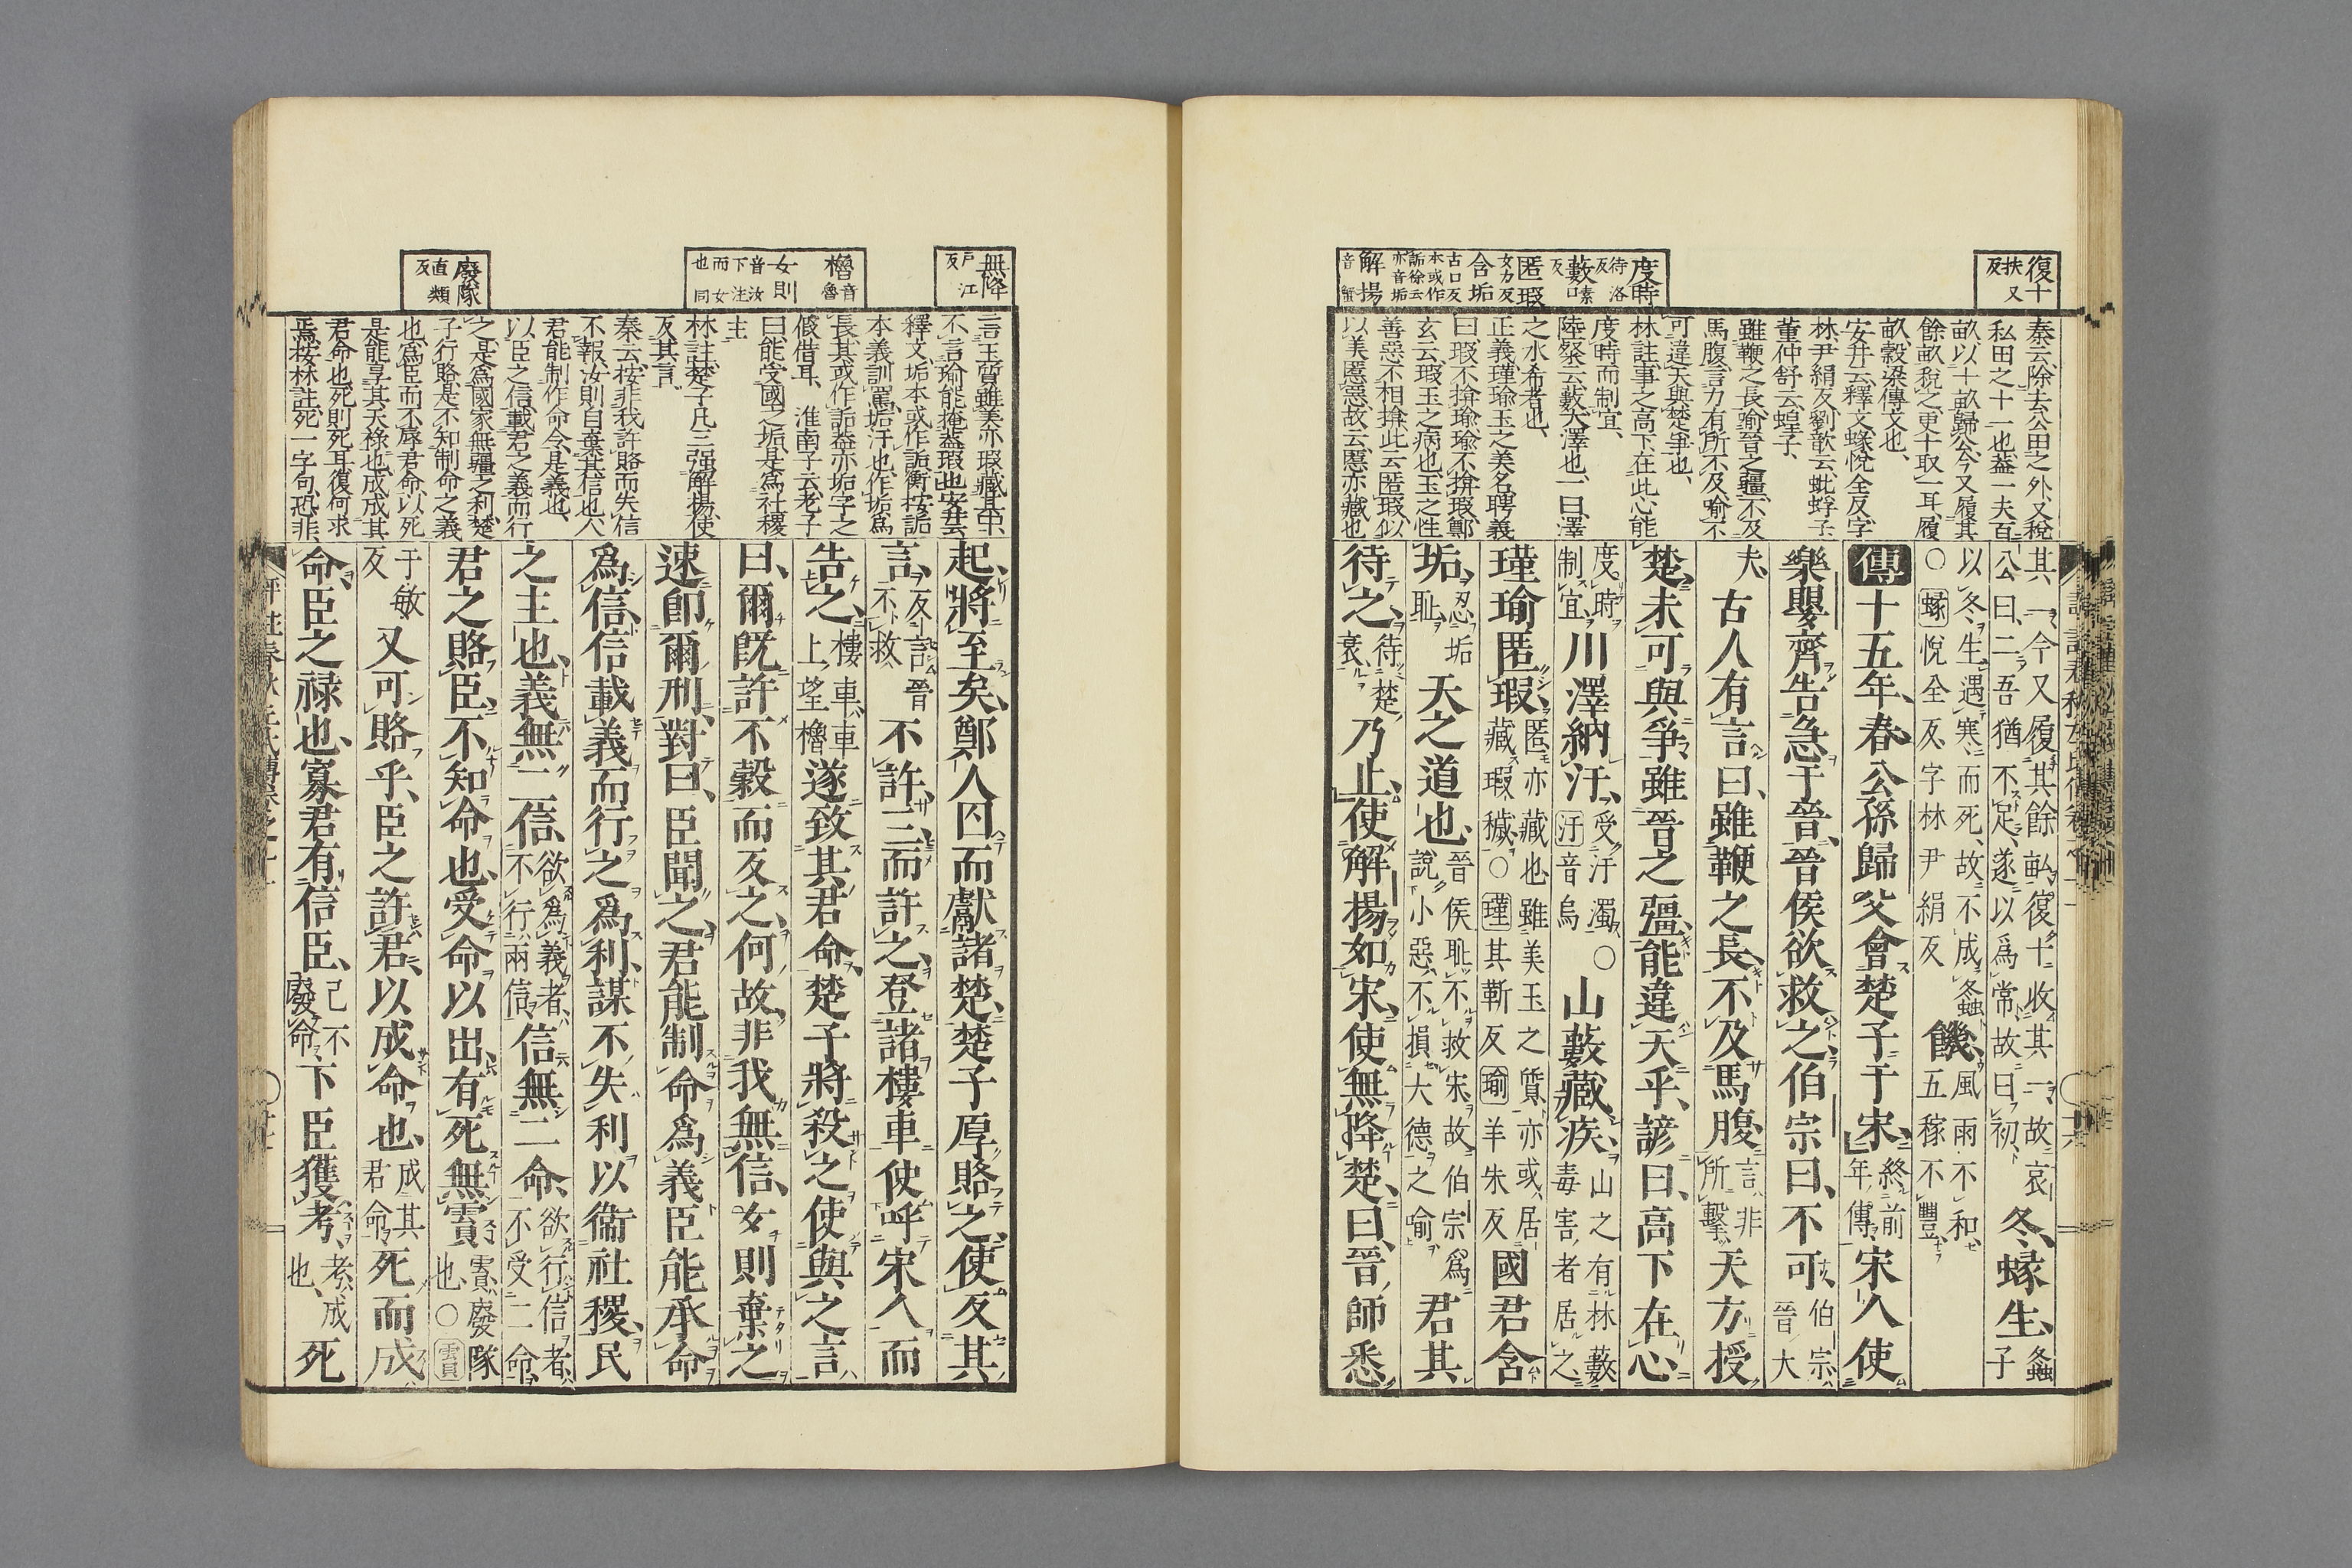 復十
扶又
反
度時
待洛
反
藪素口
反
匿瑕
女力反
含垢
古口反
本或作
詬徐云
亦音垢
解揚
音蟹
秦云除去公田之外又稅
私田之十一也蓋一夫百
畝以十畝歸公今又履其
餘畝稅之更十取一耳履
畝穀梁傳文也
安井云釋文蝝悅全反字
林尹絹反劉歆云蚍蜉子
董仲舒云蝗子
雖鞭之長喻晉之疆不及
馬腹言力有所不及喻不
可違天與楚爭也
林註事之高下在此心能
度時而制宜
陸粲云藪大澤也一曰澤
之水希者也
正義瑾瑜玉之美名聘義
曰瑕不揜瑜瑜不揜瑕鄭
玄云瑕玉之病也玉之性
善惡不相揜此云匿瑕似
以美匿惡故云匿亦藏也
其一今又履其餘畝復十收其一故哀
公曰二吾猶不足遂以爲常故曰初
冬蝝生
螽子
以冬生遇寒而死故不成螽
○蝝悅全反字林尹絹反
饑
風雨不和
五稼不豐
傳十五年春公孫歸父會楚子于宋
終前
年傳
宋人使
樂嬰齊告急于晉晉侯欲救之伯宗曰不可
伯宗
晉大
夫
古人有言曰雖鞭之長不及馬腹
言非
所擊
天方授
楚未可與爭雖晉之彊能違天乎諺曰高下在心
度時
制宜
川澤納汙
受汙濁○
汙音烏
山藪藏疾
山之有林藪
毒害者居之
瑾瑜匿瑕
匿亦藏也雖美玉之質亦或居
藏瑕穢○瑾其靳反瑜羊朱反
國君含
垢
忍垢
恥
天之道也
晉侯恥不救宋故伯宗爲
說小惡不損大德之喻
君其
待之
待楚
衰
乃止使解揚如宋使無降楚曰晉師悉
無降
戶江
反
櫓
音魯
女則
音汝
下注
而女
也同
廢隊
直類
反
言玉質雖美亦瑕藏其中
不言瑜能掩蓋瑕也安井云
釋文垢本或作詬衡按詬
本義訓罵垢汙也作垢爲
長其或作詬蓋亦垢字之
假借耳 淮南子云老子
曰能受國之垢是爲社稷
主
林註楚子凡三强解揚使
反其言
秦云按非我許賂而失信
不報汝則自棄其信也
君能制作命令是義也
以臣之信載君之義而行
之是爲國家無疆之利楚
子行賂是不知制命之義
也爲臣而不辱君命以死
是能享其天祿也成成其
君命也死則死耳復何求
焉按林註死一字句恐非
起將至矣鄭人囚而獻諸楚楚子厚賂之使反其
言
反言晉
不救
不許三而許之登諸樓車使呼宋人而
告之
樓車車
上望櫓
遂致其君命楚子將殺之使與之言
曰爾既許不穀而反之何故非我無信女則棄之
速即爾刑對曰臣聞之君能制命爲義臣能承命
爲信信載義而行之爲利謀不失利以衞社稷民
之主也義無二信
欲爲義者
不行兩信
信無二命
欲行信者
不受二命
君之賂臣不知命也受命以出有死無霣
霣廢隊
也○霣
于敏
反
又可賂乎臣之許君以成命也
成其
君命
死而成
命臣之祿也寡君有信臣
己不
廢命
下臣獲考
考成
也
死